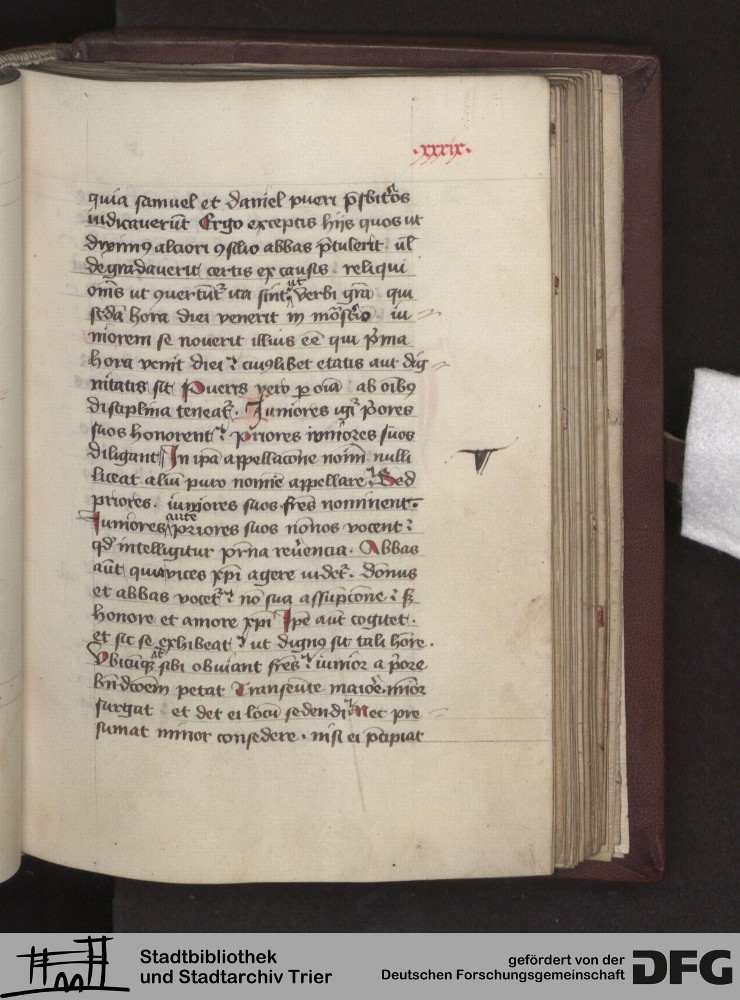 .xxxix.
quia samuel et daniel pueri p̄sbit̄os
iudicauerūt Ergo exceptis hijs quos ut
diximꝯ alciori ꝯsilio abbas p̄tulerit ul̄
degradauerit certis ex causis reliqui
om̄s ut ꝯuertūt᷑ ita sint ut Verbi gr̄a qui
sc̄da hora diei venerit in mōst̄io iu
niorem se nouerit illius ēē qui p̄ma
hora venit diei ? cuiꝯlibet etatis aut dig
nitatis sit Pueris vero p oīa ab oībꝯ
disciplina teneat᷑. Juniores igr̄ p̄ores
suos honorent ? priores iuniores suos
diligant In ip̄a appellacōne noīm nulli
liceat aliū puro nomīe appellare Sed
priores . iuniores suos fr̄es nominent
Juniores aute priores suos nōnos vocent ?
qd̕ intelligitur pr̄na reūencia . Abbas
aūt quia vices xp̄i agere uidet᷑ . dōnus
et abbas vocet᷑ ? nō sua assūpcōne ? s₃
honore et amore xp̄i Ip̄e aūt cogitet .
et sic se exhibeat ? ut dignꝯ sit tali hōre .
Vbicūq₃ at̄ sibi obuiant fr̄es ? iunior a p̄ore
bn̄dcōem petat Transeūte maiōe minōr
surgat et det ei locū sedendi Nec pre
sumat minor consedere . nisi ei p̄cipiat
Stadtbibliothek
und Stadtarchiv Trier
gefördert von der
Deutschen Forschungsgemeinschaft
DFG